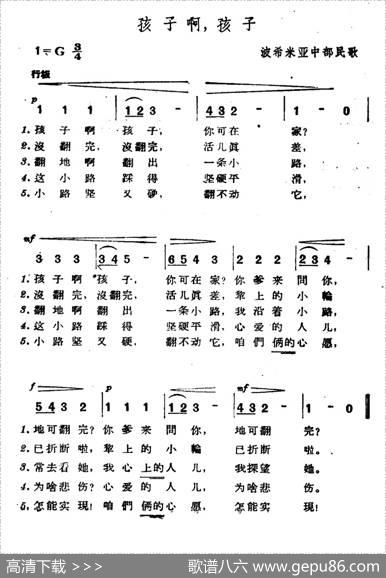 孩子啊，孩子
1=G 3/4
波希米亚中部民歌
行板
p
1 1 1 | 1 2 3 - | 5 4 3 2 | 1 - 0 |
1. 孩子啊 孩子， 你可在 家？
2. 沒翻完，沒翻完， 活儿真 差，
3. 翻地啊 翻出 一条小 路，
4. 这小路 踩得 坚硬平 滑，
5. 小路坚 又硬， 翻不动 它，
mf
3 3 3 | 3 4 5 - | 6 5 4 3 | 1 1 1 | 2 3 4 - |
1. 孩子啊 孩子， 你可在家？你爹来 問你，
2. 沒翻完，沒翻完， 活儿真差，犂上的 小輪
3. 翻地啊 翻出 一条小路，我沿着 小路，
4. 这小路 踩得 坚硬平滑，心爱的 人儿，
5. 小路坚 又硬， 翻不动它，咱們俩的心愿，
f p mf
5 4 3 2 | 1 1 1 | 1 2 3 - | 5 4 3 2 | 1 - 0 |
1. 地可翻 完？你爹来 問你， 地可翻 完？
2. 已折断 啦，犂上的 小輪 已折断 啦。
3. 常去看 她，我心上的人儿， 我探望 她。
4. 为啥悲 伤？心爱的 人儿， 为啥悲 伤。
5. 怎能实 现！咱們俩的心愿， 怎能实 现！
高清下载 >>>
歌谱八六 www.gepu86.com